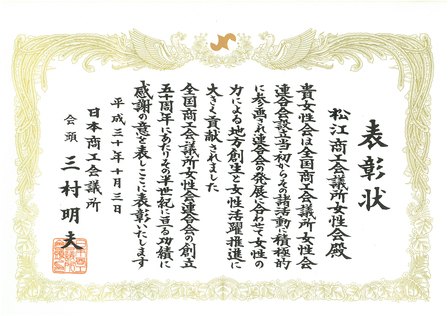 表彰状
松江商工会議所女性会殿
貴女性会は全国商工会議所女性会
連合会設立当初からその諸活動に積極的
に参画され連合会の発展に合わせて女性の
力による地方創生と女性活躍推進に
大きく貢献されました
全国商工会議所女性会連合会の創立
五十周年にあたりその半世紀に亘る功績に
感謝の意を表しここに表彰いたします
平成三十年十月三日
日本商工会議所
会頭 三村明夫